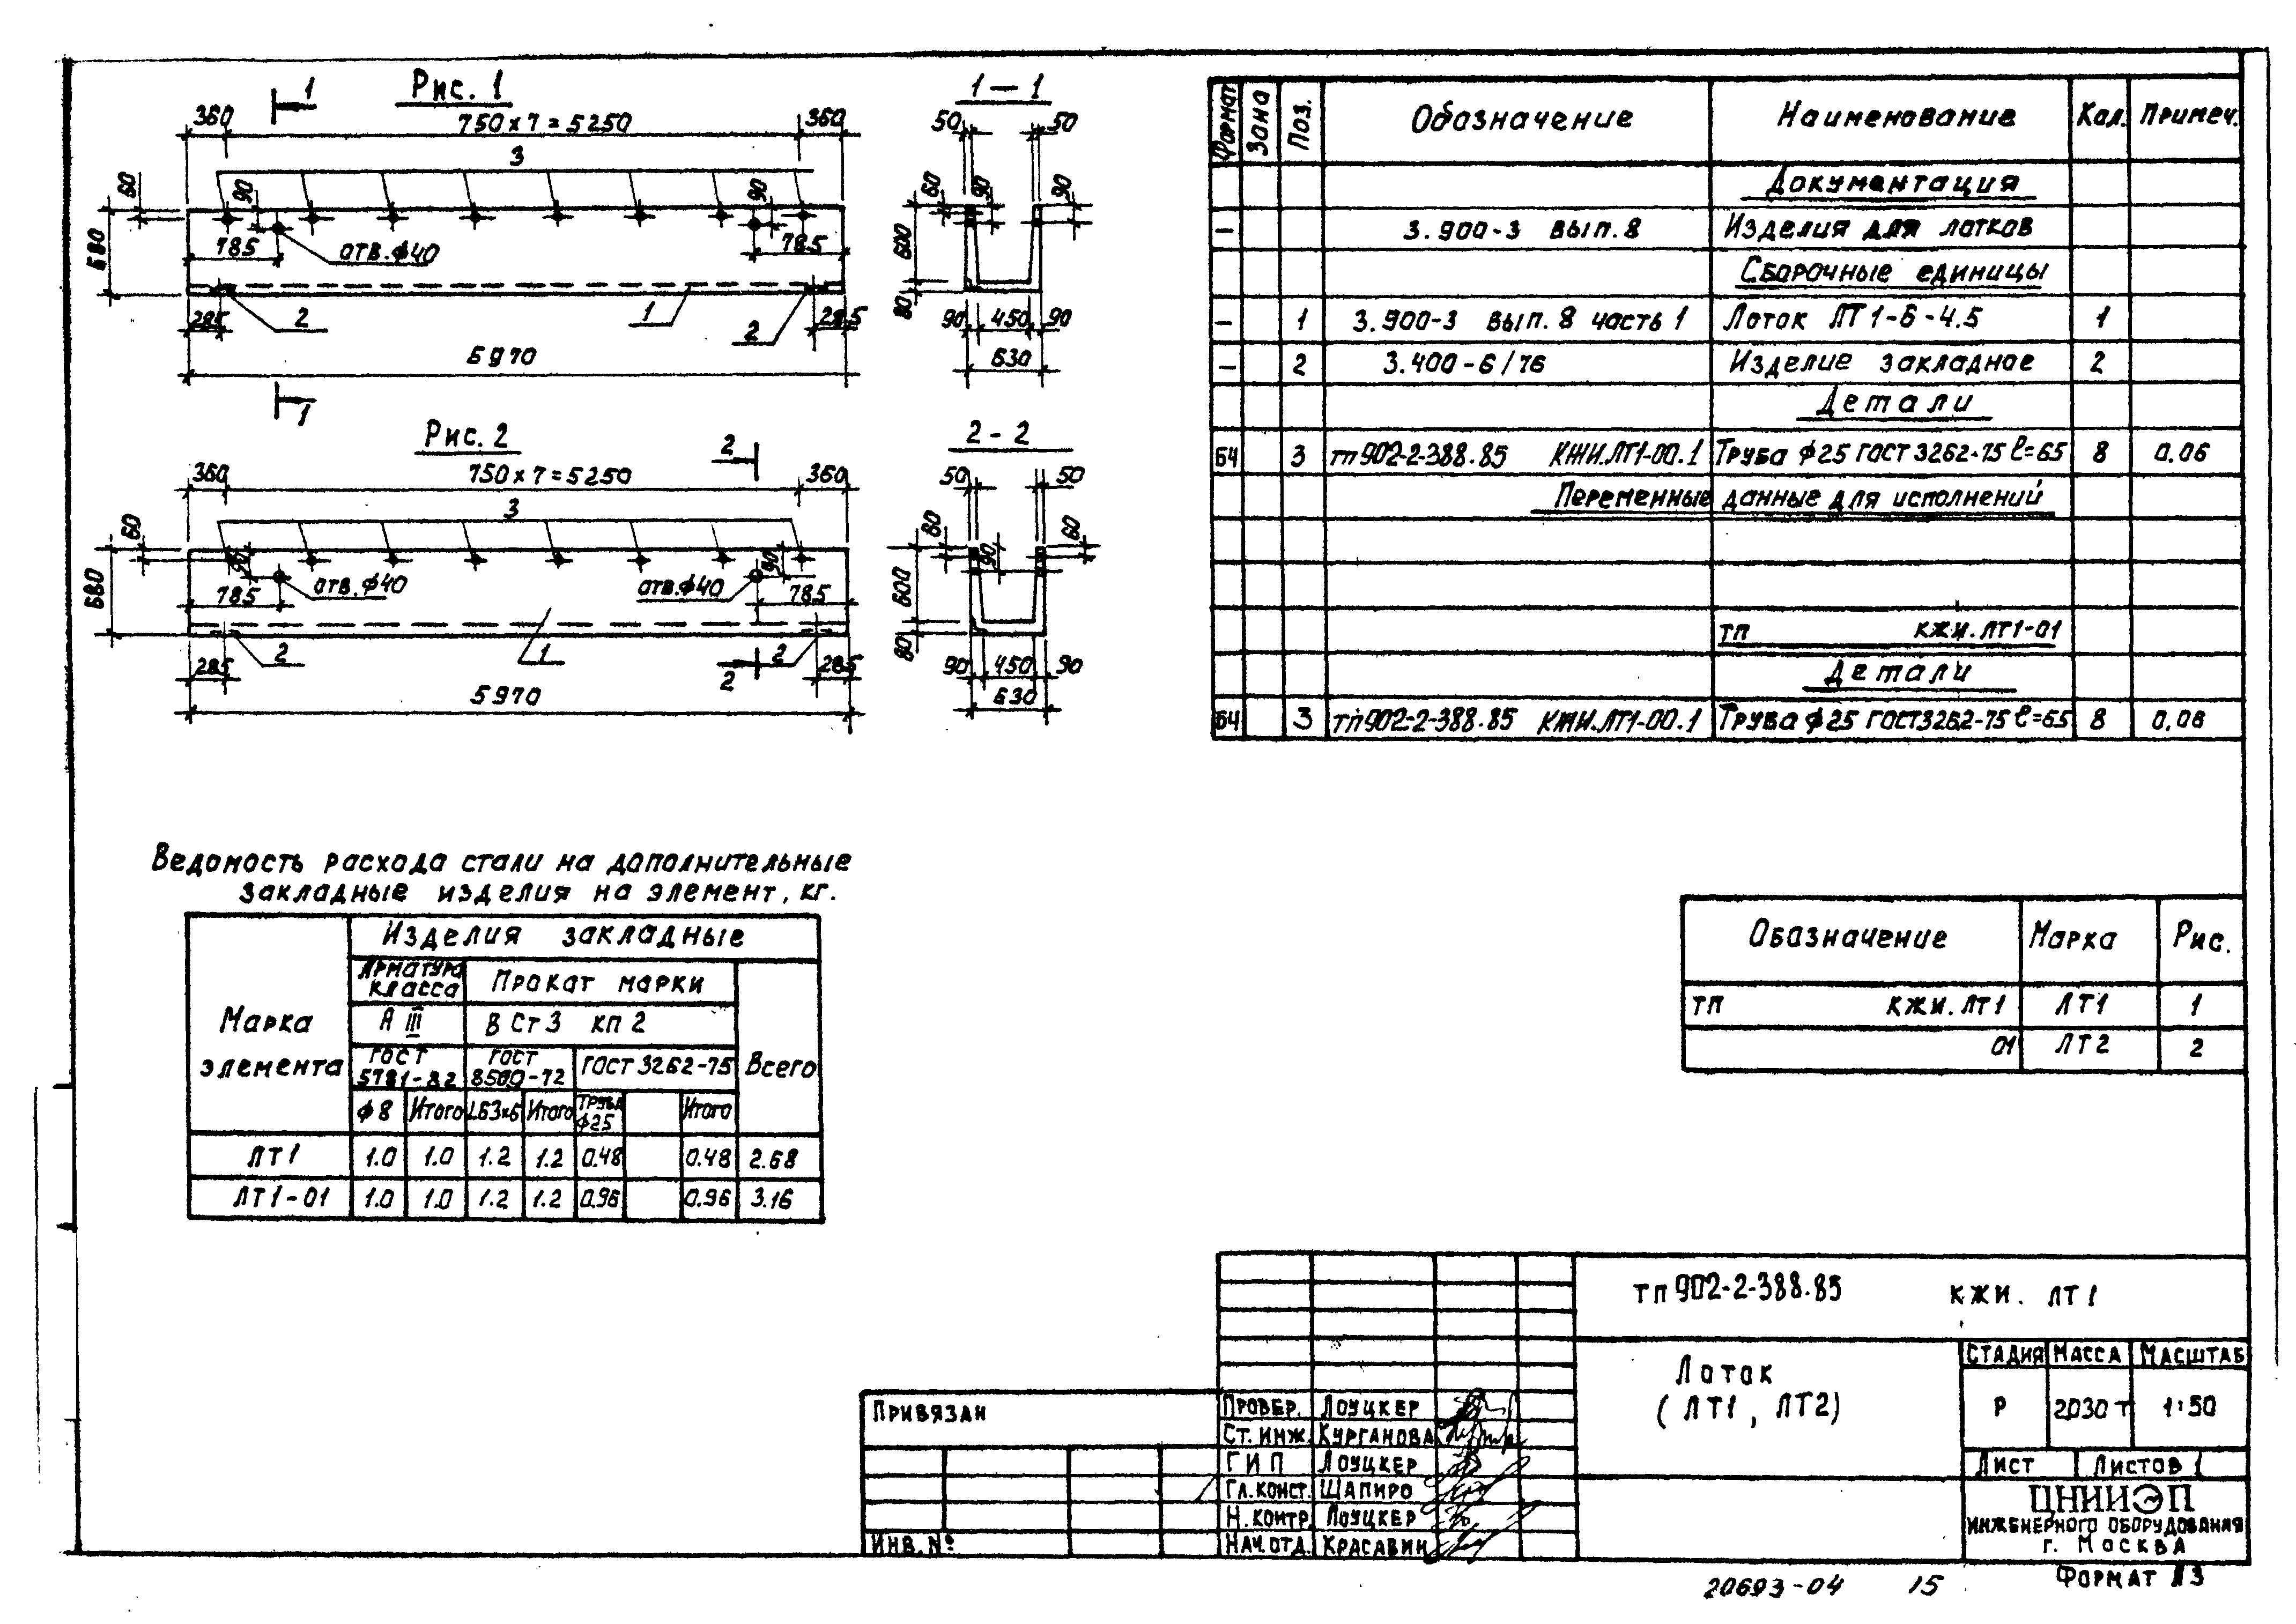 Рис. 1
1
360
750 х 7 = 5250
360
3
60
90
90
680
785
отв. ф40
785
2
1
2
285
285
5970
1
1 — 1
50
50
60
90
90
600
80
90
450
90
630
Рис. 2
2
360
750 х 7 = 5250
360
3
60
90
90
680
785
отв. ф40
отв. ф40
785
2
1
2
285
2
285
5970
2 - 2
50
50
60
90
60
600
80
90
450
90
630
Формат Зона Поз. Обозначение Наименование Кол. Примеч.
Документация
— 3.900-3 вып. 8 Изделия для лотков
Сборочные единицы
— 1 3.900-3 вып. 8 часть 1 Лоток ЛТ 1-6-4.5 1
— 2 3.400-6/76 Изделие закладное 2
Детали
Б4 3 тп 902-2-388.85 КЖИ.ЛТ1-00.1 Труба ф25 ГОСТ 3262-75 ℓ=65 8 0.06
Переменные данные для исполнений
тп кжи.ЛТ1-01
Детали
Б4 3 тп 902-2-388.85 КЖИ.ЛТ1-00.1 Труба ф25 ГОСТ 3262-75 ℓ=65 8 0,06
Ведомость расхода стали на дополнительные
закладные изделия на элемент, кг.
Марка элемента
Изделия закладные
Арматура класса
Прокат марки
А III
В Ст 3 кп 2
ГОСТ 5781-82
ГОСТ 8509-72
ГОСТ 3262-75
Всего
ф 8 Итого L63х6 Итого Труба ф25 Итого
ЛТ 1 1.0 1.0 1.2 1.2 0.48 0.48 2.68
ЛТ 1-01 1.0 1.0 1.2 1.2 0.96 0.96 3.16
Обозначение Марка Рис.
тп кжи. ЛТ1 ЛТ1 1
01 ЛТ2 2
тп 902-2-388.85 кжи. ЛТ1
Лоток
(ЛТ1, ЛТ2)
Стадия Масса Масштаб
Р 2,030 т 1:50
Лист Листов 1
ЦНИИЭП
инженерного оборудования
г. Москва
Привязан
Инв. №
Провер. Лоуцкер
Ст. инж. Курганова
ГИП Лоуцкер
Гл. конст. Шапиро
Н. контр. Лоуцкер
Нач. отд. Красавин
20693-04 15
Формат А3